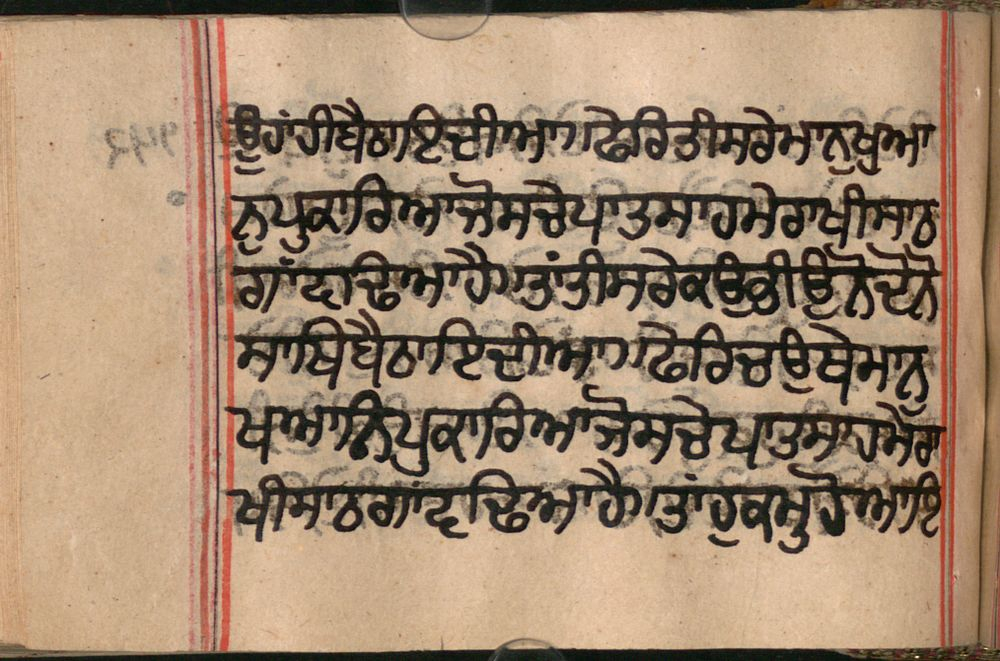 ਉਹਾਂਹੀਬੈਠਾਇਦੀਆ॥ਫੇਰਿਤੀਸਰੇਮਾਨੁਖੁਆ
ਨੁਪੁਕਾਰਿਆਜੋਸਚੇਪਾਤਸਾਹਮੇਰਾਖੀਸਾਠ
ਗਾਂਢਾਢਿਆਹੈ॥ਤਾਂਤੀਸਰੇਕਉਭੀਉਨੋਦੋਨੋ
ਸਾਥਿਬੈਠਾਇਦੀਆ॥ਫੇਰਿਚਉਥੇਮਾਨੁ
ਖਆਨਿਪੁਕਾਰਿਆਜੋਸਚੇਪਾਤਸਾਹਮੇਰਾ
ਖੀਸਾਠਗਾਂਢਾਢਿਆਹੈ॥ਤਾਂਹੁਕਮੁਹੋਆਇ